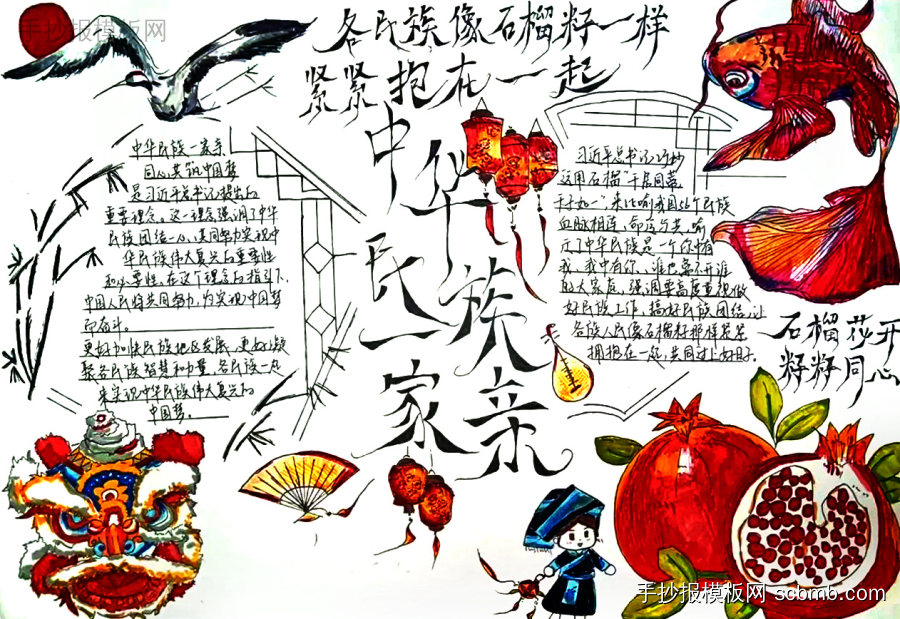 手抄报模板网
各民族像石榴籽一样
紧紧抱在一起
中华民族一家亲
中华民族一家亲
同心共筑中国梦
是习近平总书记提出的
重要理念。这一理念强调了中华
民族团结一心,共同努力实现中
华民族伟大复兴的重要性
和必要性。在这个理念的指引下,
中国人民将共同努力,为实现中国梦
而奋斗。
更好加快民族地区发展,更好凝
聚各民族智慧和力量,各民族一起
来实现中华民族伟大复兴的
中国梦。
习近平总书记巧妙
运用石榴“千房同蒂,
千子如一”来比喻我国56个民族
血脉相连,命运与共,喻
示了中华民族是一个你中有
我,我中有你、谁也离不开谁
的大家庭,强调要高度重视做
好民族工作,搞好民族团结,让
各族人民像石榴籽那样紧紧
拥抱在一起,共同过上好日子。
石榴花开
籽籽同心
手抄报模板网 scbmb.com